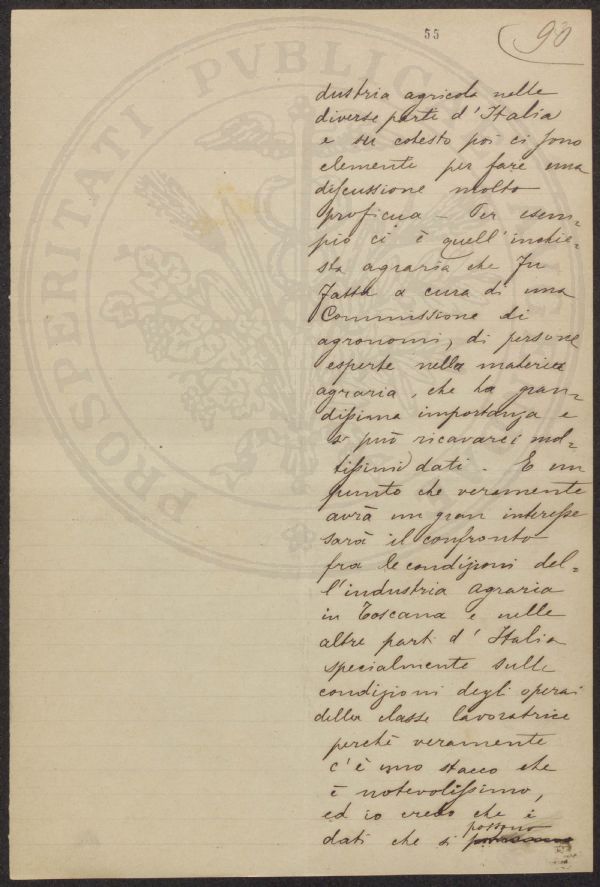 55
90
dustria agricola nelle
diverse parti d'Italia
e su cotesto poi ci sono
elementi per fare una
discussione molto
proficua – Per esem=
pio ci è quell'inchie=
sta agraria che fu
fatta a cura di una
Commissione di
agronomi, di persone
esperte nella materia
agraria, che ha gran=
dissima importanza e
si può ricavarci mol=
tissimi dati. E un
punto che veramente
avrà un gran interesse
sarà il confronto
fra le condizioni del=
l'industria agraria
in Toscana e nelle
altre parti d'Italia
specialmente sulle
condizioni degli operai
della classe lavoratrice
perchè veramente
c'è uno stacco che
è notevolissimo,
ed io credo che i
possono
dati che si
PROSPERITATI PVBLIC